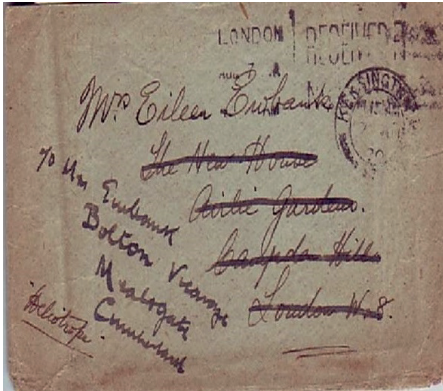 LONDON
RECEIVED
KENSINGTON
Mrs Eileen Ewbank
The New House
Airlie Gardens.
Campden Hill.
London W.8.
c/o Mrs Ewbank
Bolton Vicarage
Mealsgate
Cumberland
Heliotrope.